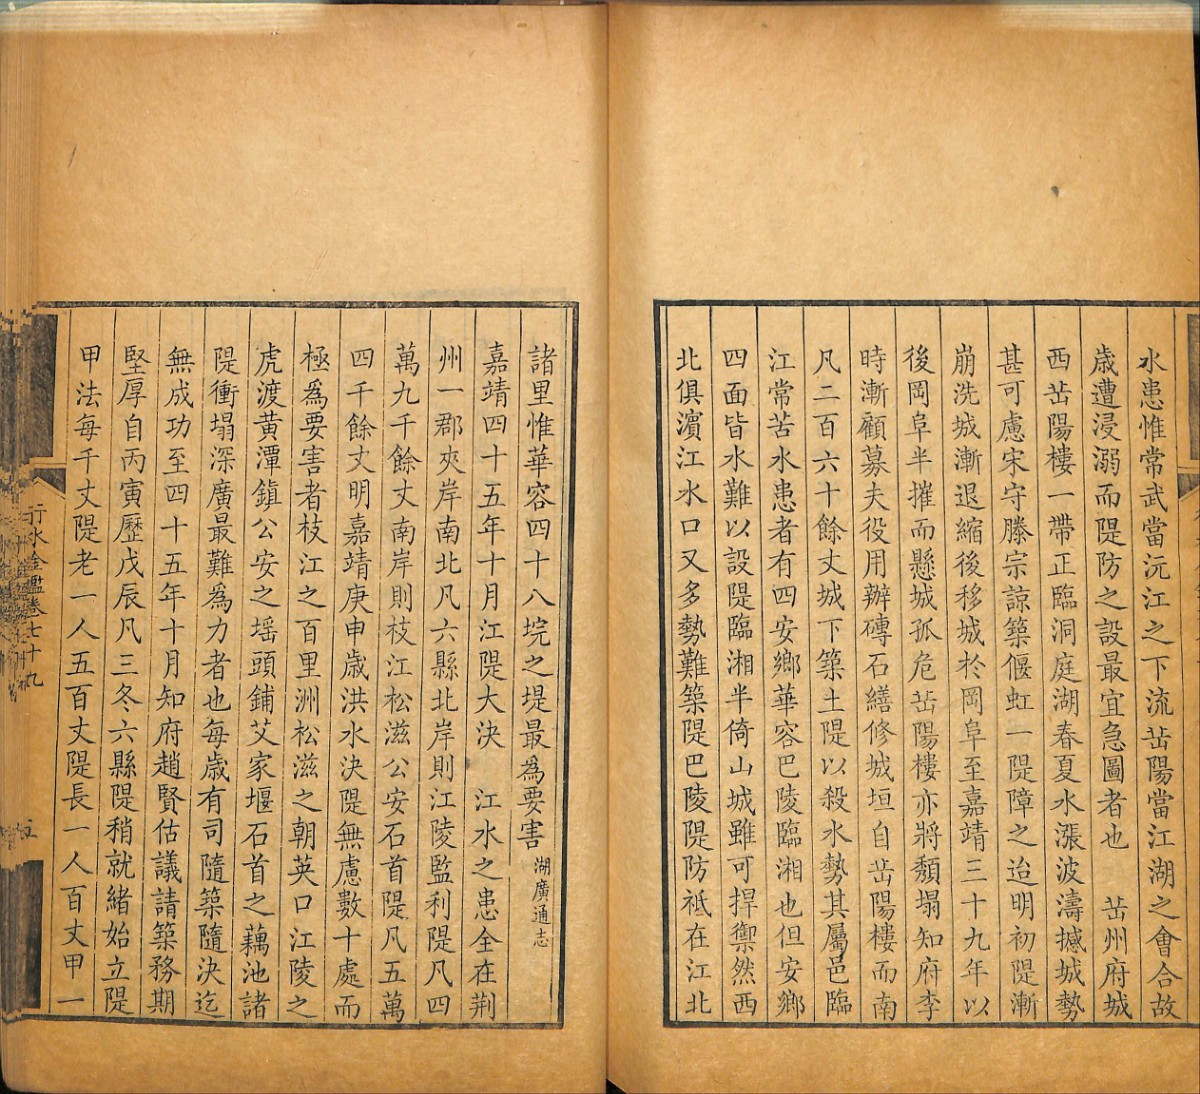 水患惟常武當沅江之下流岳陽當江湖之會合故
歲遭浸溺而隄防之設最宜急圖者也　岳州府城
西岳陽樓一帶正臨洞庭湖春夏水漲波濤撼城勢
甚可慮宋守滕宗諒築偃虹一隄障之迨明初隄漸
崩洗城漸退縮後移城於岡阜至嘉靖三十九年以
後岡阜半摧而懸城孤危岳陽樓亦將頽塌知府李
時漸顧募夫役用辦磚石繕修城垣自岳陽樓而南
凡二百六十餘丈城下築土隄以殺水勢其屬邑臨
江常苦水患者有四安鄉華容巴陵臨湘也但安鄉
四面皆水難以設隄臨湘半倚山城雖可捍禦然西
北俱濱江水口又多勢難築隄巴陵隄防祗在江北
諸里惟華容四十八垸之堤最為要害 湖廣通志
嘉靖四十五年十月江隄大決　江水之患全在荆
州一郡夾岸南北凡六縣北岸則江陵監利隄凡四
萬九千餘丈南岸則枝江松滋公安石首隄凡五萬
四千餘丈明嘉靖庚申歲洪水決隄無慮數十處而
極為要害者枝江之百里洲松滋之朝英口江陵之
虎渡黄潭鎮公安之瑶頭鋪艾家堰石首之藕池諸
隄衝塌深廣最難為力者也每歲有司隨築隨決迄
無成功至四十五年十月知府趙賢估議請築務期
堅厚自丙寅歷戊辰凡三冬六縣隄稍就緒始立隄
甲法每千丈隄老一人五百丈隄長一人百丈甲一
行水金鑑卷七十九
五